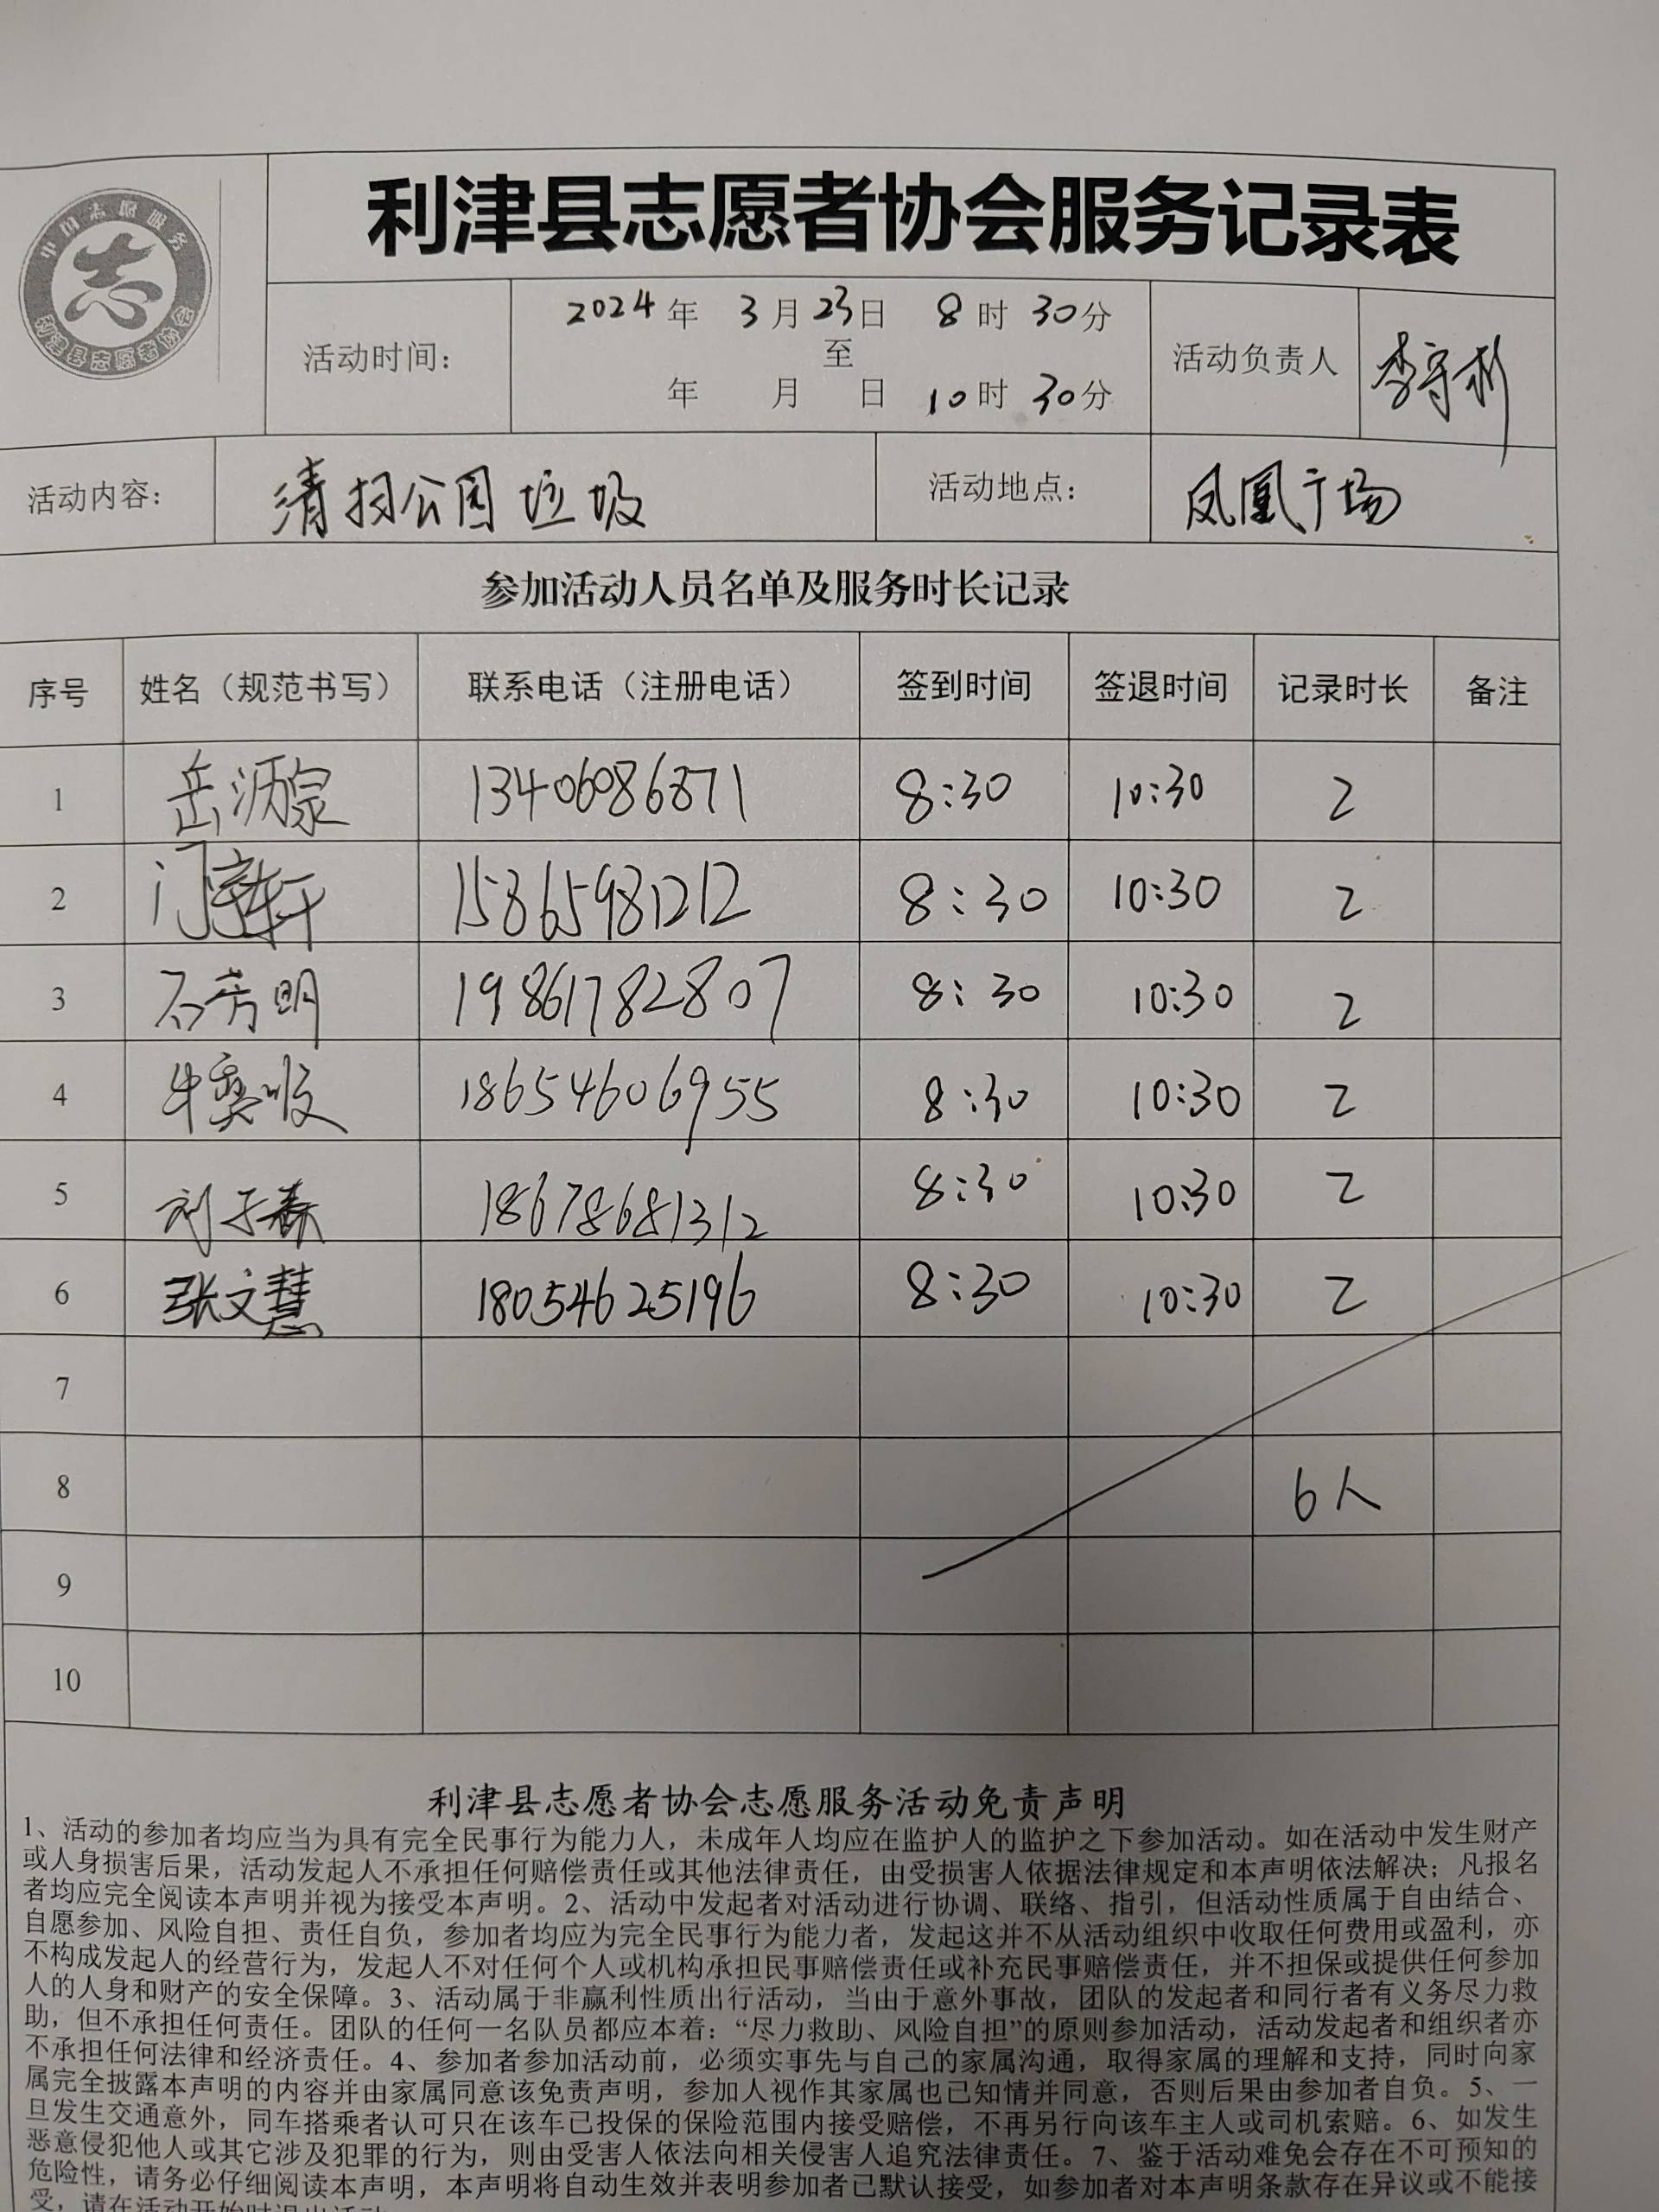 中国志愿服务
志
利津县志愿者协会
利津县志愿者协会服务记录表
活动时间：
2024年 3月23日 8时30分
至
年 月 日 10时30分
活动负责人
李守彬
活动内容：
清扫公园垃圾
活动地点：
凤凰广场
参加活动人员名单及服务时长记录
序号 姓名（规范书写） 联系电话（注册电话） 签到时间 签退时间 记录时长 备注
1 岳沥泉 13406086871 8:30 10:30 2
2 门 轩 15865981212 8:30 10:30 2
3 石秀明 19861782807 8:30 10:30 2
4 牛 18654606955 8:30 10:30 2
5 刘子森 18678681312 8:30 10:30 2
6 张文慧 18054625196 8:30 10:30 2
7
8 6人
9
10
利津县志愿者协会志愿服务活动免责声明
1、活动的参加者均应当为具有完全民事行为能力人，未成年人均应在监护人的监护之下参加活动。如在活动中发生财产
或人身损害后果，活动发起人不承担任何赔偿责任或其他法律责任，由受损害人依据法律规定和本声明依法解决；凡报名
者均应完全阅读本声明并视为接受本声明。2、活动中发起者对活动进行协调、联络、指引，但活动性质属于自由结合、
自愿参加、风险自担、责任自负，参加者均应为完全民事行为能力者，发起这并不从活动组织中收取任何费用或盈利，亦
不构成发起人的经营行为，发起人不对任何个人或机构承担民事赔偿责任或补充民事赔偿责任，并不担保或提供任何参加
人的人身和财产的安全保障。3、活动属于非赢利性质出行活动，当由于意外事故，团队的发起者和同行者有义务尽力救
助，但不承担任何责任。团队的任何一名队员都应本着：“尽力救助、风险自担”的原则参加活动，活动发起者和组织者亦
不承担任何法律和经济责任。4、参加者参加活动前，必须实事先与自己的家属沟通，取得家属的理解和支持，同时向家
属完全披露本声明的内容并由家属同意该免责声明，参加人视作其家属也已知情并同意，否则后果由参加者自负。5、一
旦发生交通意外，同车搭乘者认可只在该车已投保的保险范围内接受赔偿，不再另行向该车主人或司机索赔。6、如发生
恶意侵犯他人或其它涉及犯罪的行为，则由受害人依法向相关侵害人追究法律责任。7、鉴于活动难免会存在不可预知的
危险性，请务必仔细阅读本声明，本声明将自动生效并表明参加者已默认接受，如参加者对本声明条款存在异议或不能接
受，请在活动开始时退出活动